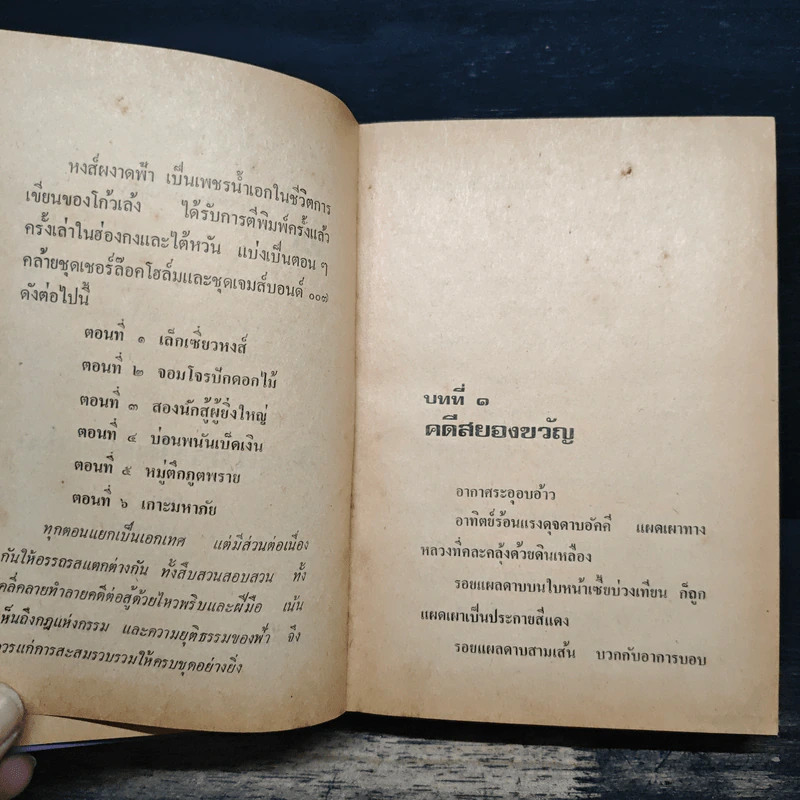 หงส์ผงาดฟ้า เป็นเพชรน้ำเอกในชีวิตการ
เขียนของโก้วเล้ง ได้รับการตีพิมพ์ครั้งแล้ว
ครั้งเล่าในฮ่องกงและไต้หวัน แบ่งเป็นตอน ๆ
คล้ายชุดเชอร์ล๊อคโฮล์มและชุดเจมส์บอนด์ ๐๐๗
ดังต่อไปนี้
ตอนที่ ๑ เล็กเซี่ยวหงส์
ตอนที่ ๒ จอมโจรปักดอกไม้
ตอนที่ ๓ สองนักสู้ผู้ยิ่งใหญ่
ตอนที่ ๔ บ่อนพนันเบ็ดเงิน
ตอนที่ ๕ หมู่ตึกภูตพราย
ตอนที่ ๖ เกาะมหาภัย
ทุกตอนแยกเป็นเอกเทศ แต่มีส่วนต่อเนื่อง
กันให้อรรถรสแตกต่างกัน ทั้งสืบสวนสอบสวน ทั้ง
คลี่คลายทำลายคดีต่อสู้ด้วยไหวพริบและฝีมือ เน้น
ห็นถึงกฎแห่งกรรม และความยุติธรรมของฟ้า จึง
วรแก่การสะสมรวบรวมให้ครบชุดอย่างยิ่ง
บทที่ ๑
คดีสยองขวัญ
อากาศระอุอบอ้าว
อาทิตย์ร้อนแรงดุจดาบอัคคี แผดเผาทาง
หลวงที่คละคลุ้งด้วยดินเหลือง
รอยแผลดาบบนใบหน้าเซี้ยบ่วงเทียน ก็ถูก
แผดเผาเป็นประกายสีแดง
รอยแผลดาบสามเส้น บวกกับอาการบอบ